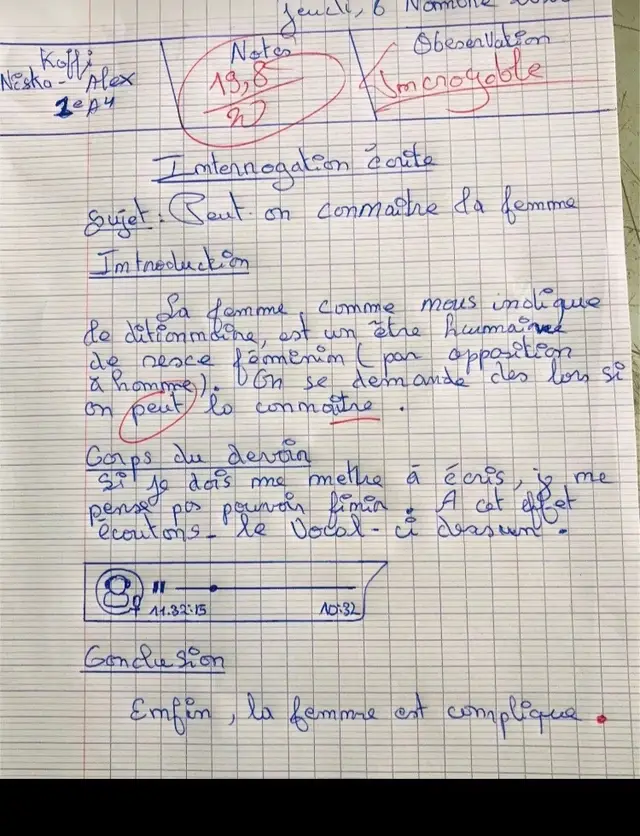 Jeudi, 6 Novembre
Koffi
Niska-Alex
2e A4
Notes
19,8
20
Observation
Incroyable
Interrogation écrite
Sujet : Peut on connaître la femme
Introduction
La femme, comme nous indique
le ditionnaire, est un être humaine
de sexce féminin (par opposition
à homme). On se demande des lors si
on peut lo connaître.
Corps du devoir
Si je dois me mettre à écris, je me
pense pas pouvoir finir. A cet effet
écoutons-le Vocal-ci dessun.
11:32:15
10:32
Conclusion
Enfin, la femme est complique.